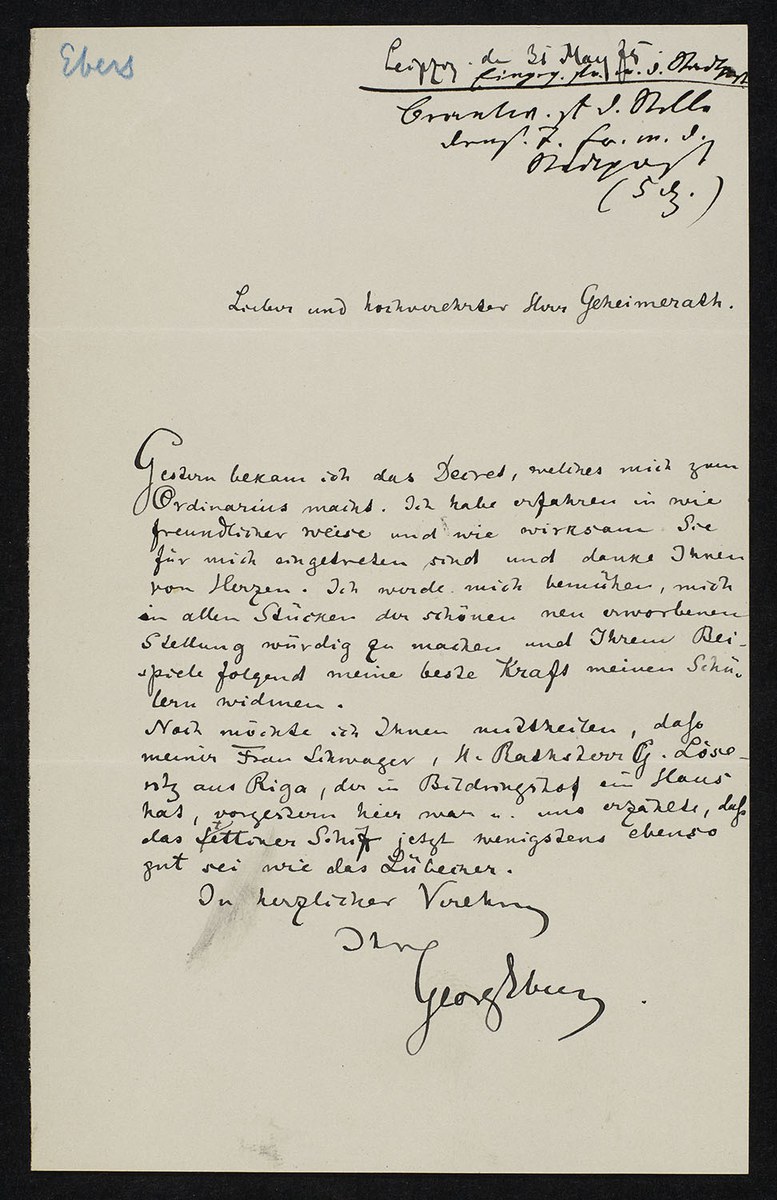 Ebers
Leipzig. den 31 May 75
Eingeg. u. d. Stadtpost
Beantw. d. Stelle
m. d.
Stadtpost
Lieber und hochverehrter Herr Geheimerath.
Gestern bekam ich das Decret, welches mich zum
Ordinarius macht. Ich habe erfahren in wie
freundlicher weise und wie wirksam Sie
für mich eingetreten sind und danke Ihnen
von Herzen. Ich werde mich bemühen, mich
in allen Stücken der schönen neu erworbenen
Stellung würdig zu machen und Ihrem Bei-
spiele folgend meine beste Kraft meinen Schü-
lern widmen.
Noch möchte ich Ihnen mittheilen, daß
meiner Frau Schwager, H. Rathsherr G. Löse-
vitz aus Riga, der in Bildringshof ein Haus
hat, vorgestern hier war u. uns erzählte, daß
das Stettiner Schiff jetzt wenigstens ebenso
gut sei wie das Lübecker.
In herzlicher Verehrung
Ihr
Georg Ebers.